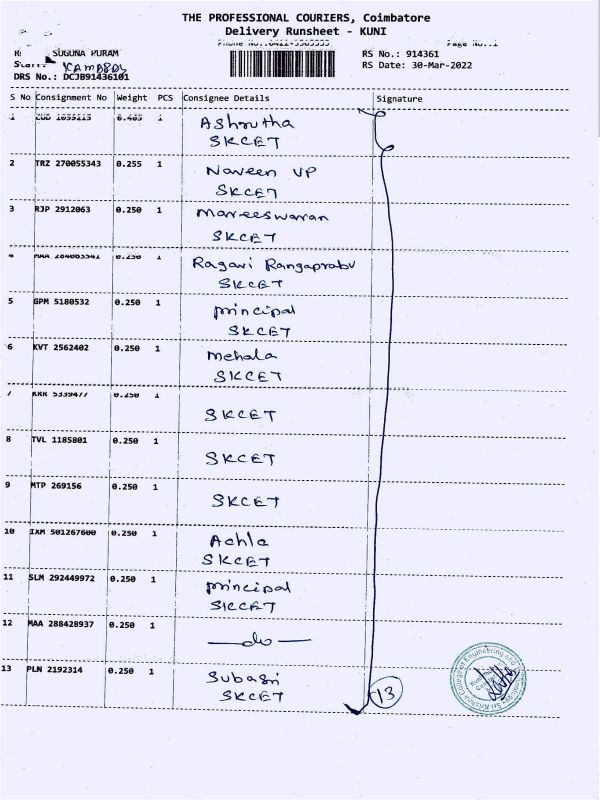 THE PROFESSIONAL COURIERS, Coimbatore
Delivery Runsheet - KUNI
Phone No.:0422-3505555 Page No.:1
SUGUNA PURAM RS No.: 914361
RS Date: 30-Mar-2022
DRS No.: DCJB91436101
S No Consignment No Weight PCS Consignee Details Signature
1 1
Ashrutha
SKCET
2 TRZ 270055343 0.255 1 Naveen VP
SKCET
3 RJP 2912063 0.250 1 Mareeswaran
SKCET
4 0.250 1 Ragavi Rangaprabu
SKCET
5 GPM 5180532 0.250 1 principal
SKCET
6 KVT 2562402 0.250 1 Mehala
SKCET
7 KRR 5339477 0.250 1
SKCET
8 TVL 1185801 0.250 1
SKCET
9 MTP 269156 0.250 1
SKCET
10 IXM 501267600 0.250 1 Achla
SKCET
11 SLM 292449972 0.250 1 principal
SKCET
12 MAA 288428937 0.250 1
—do—
13 PLN 2192314 0.250 1 Subasri
SKCET
13
Sri Krishna College of Engineering and Technology